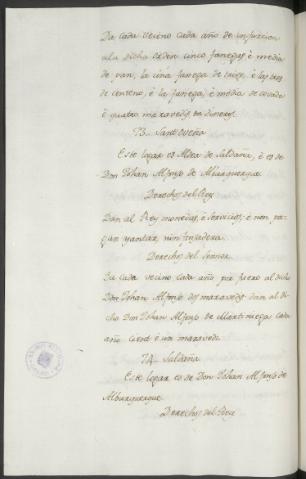 Da cada vecino cada año de infurcion
a la dicha orden cinco fanegas è media
de pan, la una fanega de trigo, è las tres
de centeno, è la fanega, è media de cevada
è quatro maravedis en dineros.
73. Santoveña
Este logar es Aldea de Saldaña, è es de
Don Johan Alfonso de Alburquerque
Derechos del Rey
Dan al Rey monedas, è servicios, è non pa-
gan yantar, nin fonsadera.
Derechos del Señor
Da cada vecino cada año por fuero al dicho
Don Johan Alfonso dos maravedis dan al di-
cho Don Johan Alfonso de Martiniega cada
año ciento è un maravedi.
74. Saldaña
Este logar es de Don Johan Alfonso de
Alburquerque
Derechos del Rey